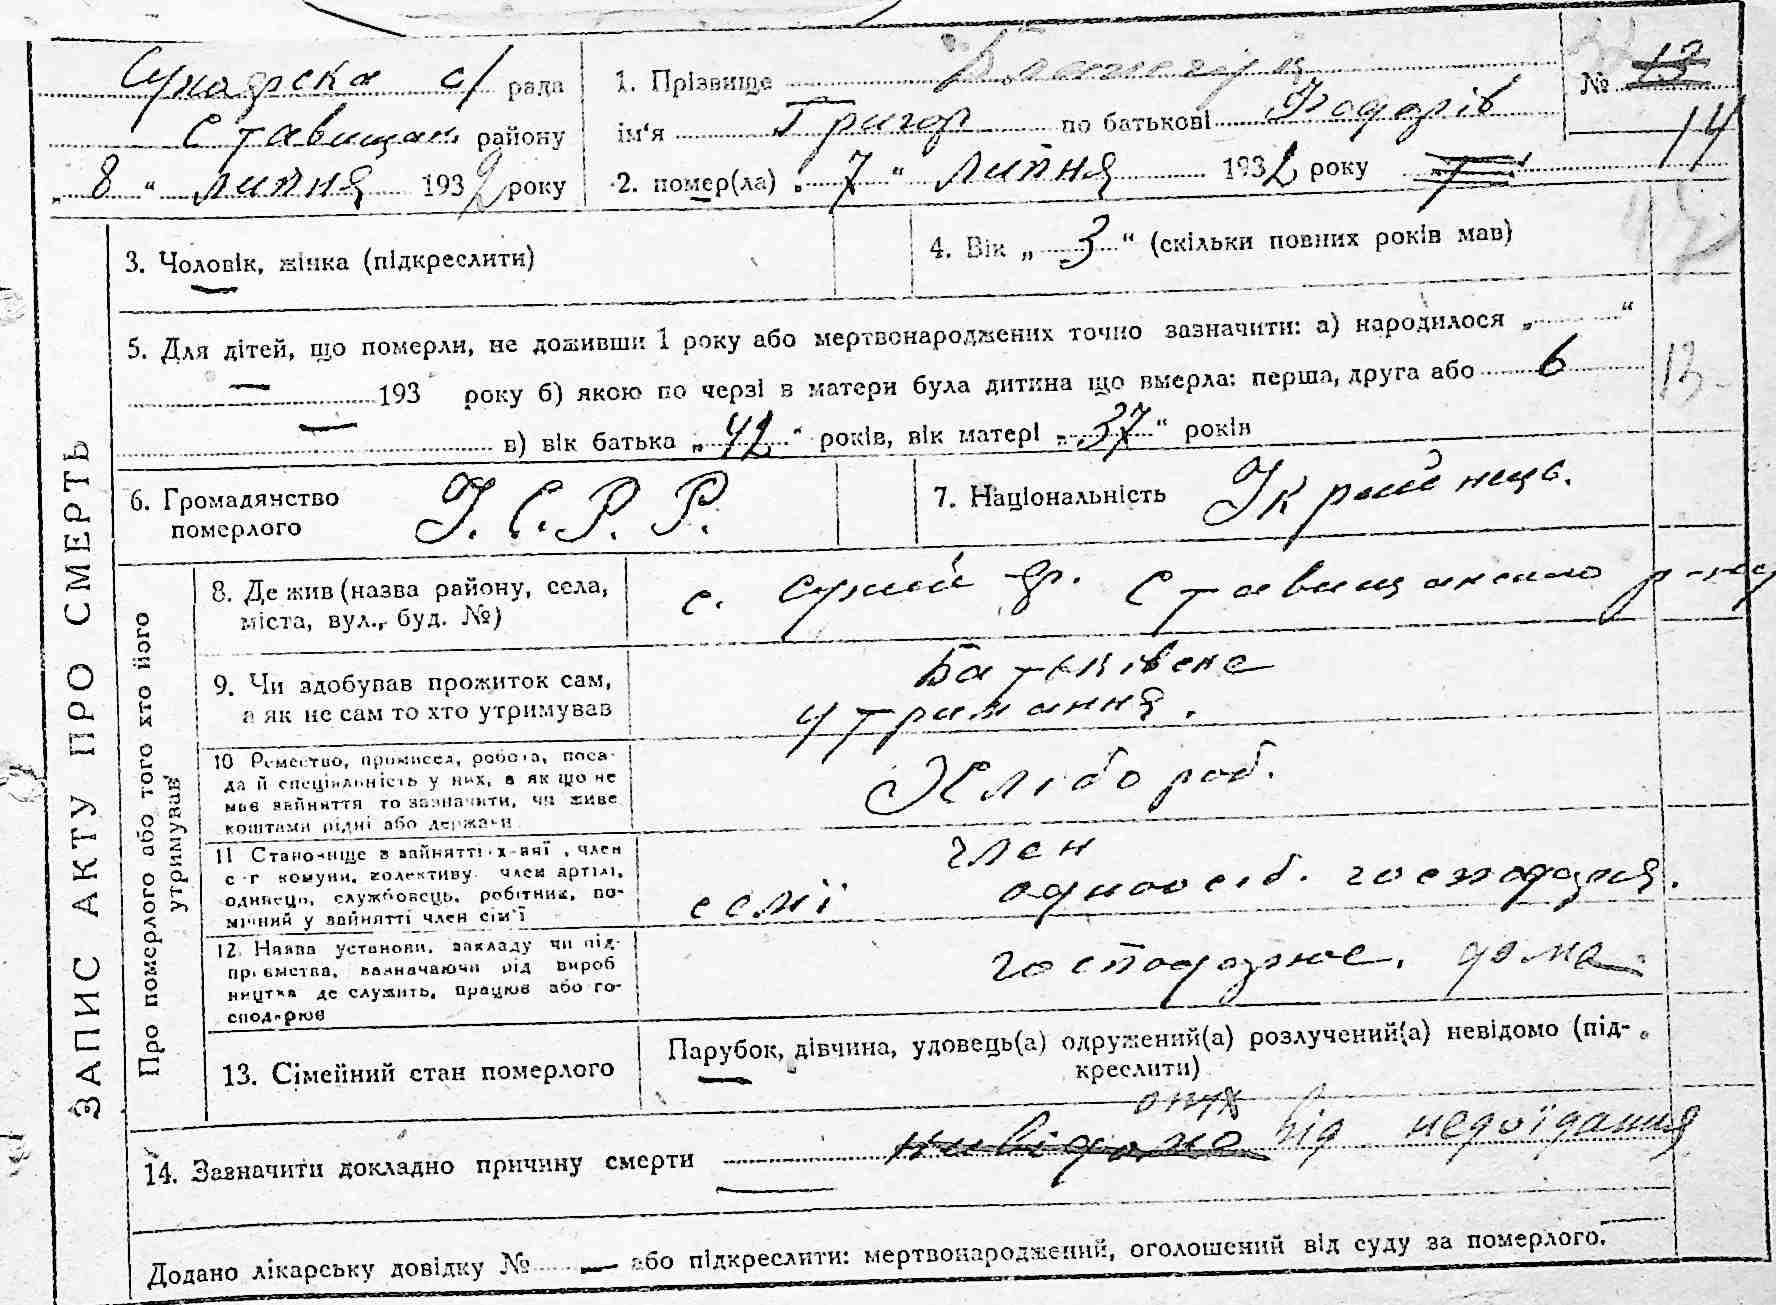 рада 1. Прізвище № 13
Ставищан. району ім'я Григор по батькові Тодорів 14
„ 8 “ липня 1932 року 2. помер(ла) „ 7 “ липня 1932 року
3. Чоловік, жінка (підкреслити) 4. Вік „ 3 “ (скільки повних років мав)
5. Для дітей, що померли, не доживши 1 року або мертвонароджених точно зазначити: а) народилося „ “
— 193 року б) якою по черзі в матери була дитина що вмерла: перша, друга або 6 13
— в) вік батька „ 42 “ років, вік матері „ 37 “ років
6. Громадянство
померлого
У. С. Р. Р.
7. Національність Українець.
8. Де жив (назва району, села,
міста, вул., буд. №)
с. Сухий Яр. Ставищанского р-ну
9. Чи здобував прожиток сам,
а як не сам то хто утримував
Батьківске
утримання.
10 Ремество, промисел, робота, поса-
да й спеціяльність у них, а як що не
має зайняття то зазначити, чи живе
коштами рідні або держави
Хлібороб.
11 Становище в зайнятті х-вяї, член
с-г комуни, колективу член артілі,
одинець, службовець, робітник, по-
мічний у зайнятті член сім'ї
член
семії одноосіб. господарця.
12. Назва установи, закладу чи під-
приємства, зазначаючи рід вироб
ництва де служить, працює або го-
сподарює
господарює. дома.
13. Сімейний стан померлого
Парубок, дівчина, удовець(а) одружений(а) розлучений(а) невідомо (під-
креслити)
опух
14. Зазначити докладно причину смерти невідома від недоїдання
Додано лікарську довідку № — або підкреслити: мертвонароджений, оголошений від суду за померлого.
ЗАПИС АКТУ ПРО СМЕРТЬ
Про померлого або того хто його
утримував